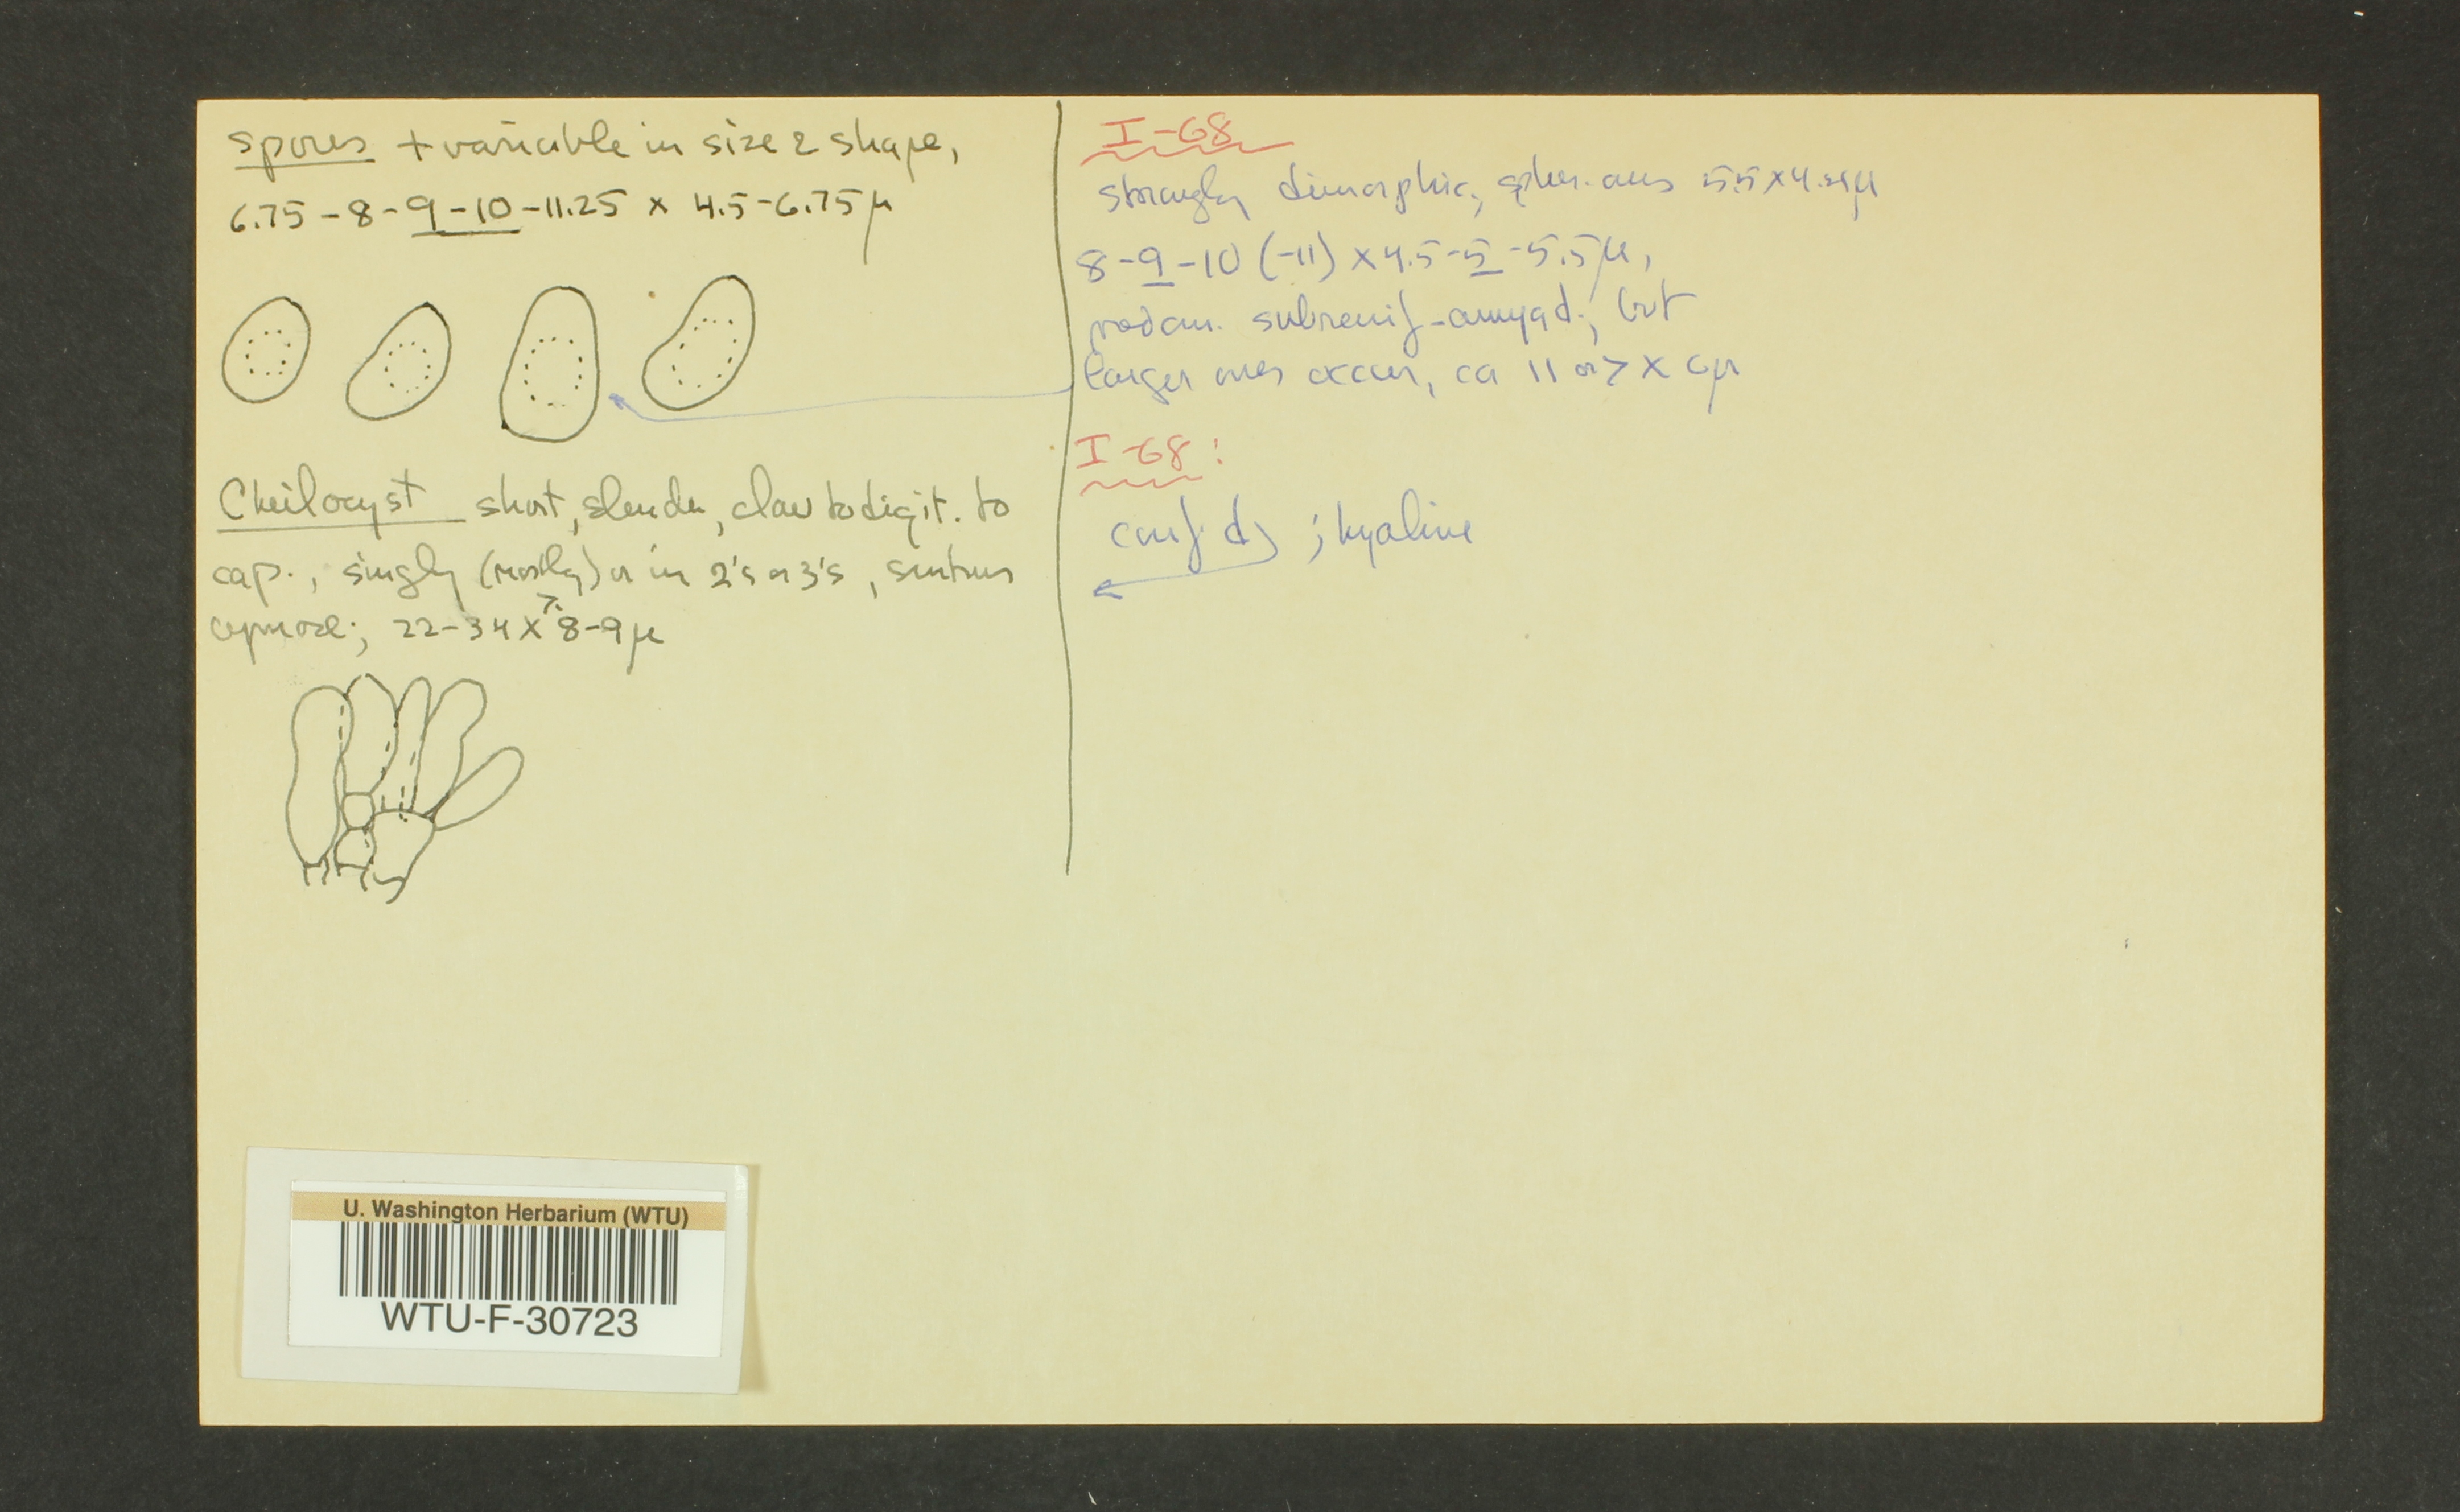 spores + variable in size & shape,
6.75-8-9-10-11.25 x 4.5-6.75µ
Cheilocyst short, slender, clav to digit. to
cap., singly (mostly) or in 2's or 3's,
22-34 x 8-9µ
I-68
strongly dimorphic, spher. ones 5.5 x 4.
8-9-10 (-11) x 4.5-5-5.5µ,
subrenif-amygd., but
larger ones occur, ca 11 or > x 6µ
I-68:
; hyaline
U. Washington Herbarium (WTU)
WTU-F-30723